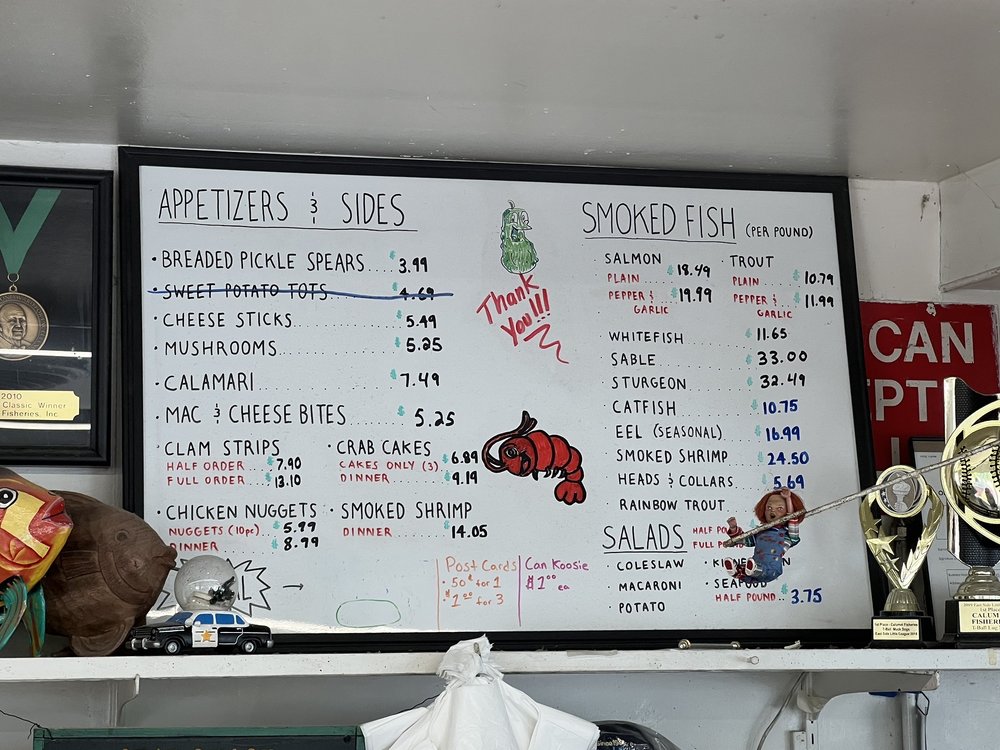 APPETIZERS & SIDES
· BREADED PICKLE SPEARS.... $3.99
· SWEET POTATO TOTS........ $4.69
· CHEESE STICKS............ $5.49
· MUSHROOMS................ $5.25
· CALAMARI................. $7.49
· MAC & CHEESE BITES....... $5.25
· CLAM STRIPS
HALF ORDER ... $7.90
FULL ORDER ... $13.10
· CRAB CAKES
CAKES ONLY (3) . $6.89
DINNER ......... $9.19
· CHICKEN NUGGETS
NUGGETS (10pc) . $5.99
DINNER ......... $8.99
· SMOKED SHRIMP
DINNER ......... $14.05
Thank
You!!!
Post Cards
· 50¢ for 1
· $1.00 for 3
Can Koosie
$1.00 ea
SMOKED FISH (PER POUND)
· SALMON
PLAIN $18.49
PEPPER & GARLIC $19.99
· TROUT
PLAIN $10.79
PEPPER & GARLIC $11.99
· WHITEFISH ....... $11.65
· SABLE ........... $33.00
· STURGEON ........ $32.49
· CATFISH ......... $10.75
· EEL (SEASONAL) .. $16.99
· SMOKED SHRIMP ... $24.50
· HEADS & COLLARS . $5.69
· RAINBOW TROUT
SALADS
HALF
FULL
· COLESLAW
· MACARONI
· POTATO
· SEAFOOD
HALF POUND .. $3.75
2010
Classic Winner
Fisheries, Inc
CAN